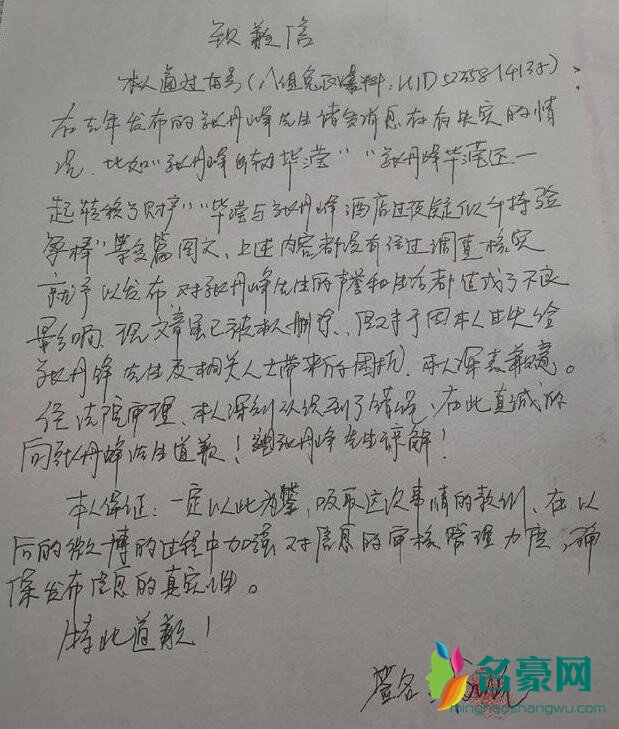 致歉信
本人通过本号(八组兔区爆料,UID5235814135):
在去年发布的张丹峰先生诸多消息存在失实的情
况.比如"张丹峰 毕滢""张丹峰毕滢还一
起转移了财产""毕滢与张丹峰酒店过夜疑似手持验
孕棒"等多篇图文、上述内容都没有经过调查核实
就予以发布 对张丹峰先生的声誉和生活都造成了不良
影响.现文章虽已被本人删除、但对于因本人 失
张丹峰先生及相关人士带来的困扰.本人深表歉意。
经法院审理、本人深刻认识到了错误、在此真诚的
向张丹峰先生道歉! 张丹峰先生谅解!
本人保证:一定以此为鉴,吸取这次事情的教训、在以
后的微博的过程中加强对信息的审核管理力度,确
保发布信息的真实性。
特此道歉!
签名:
名豪网
minghaoshangwu.com